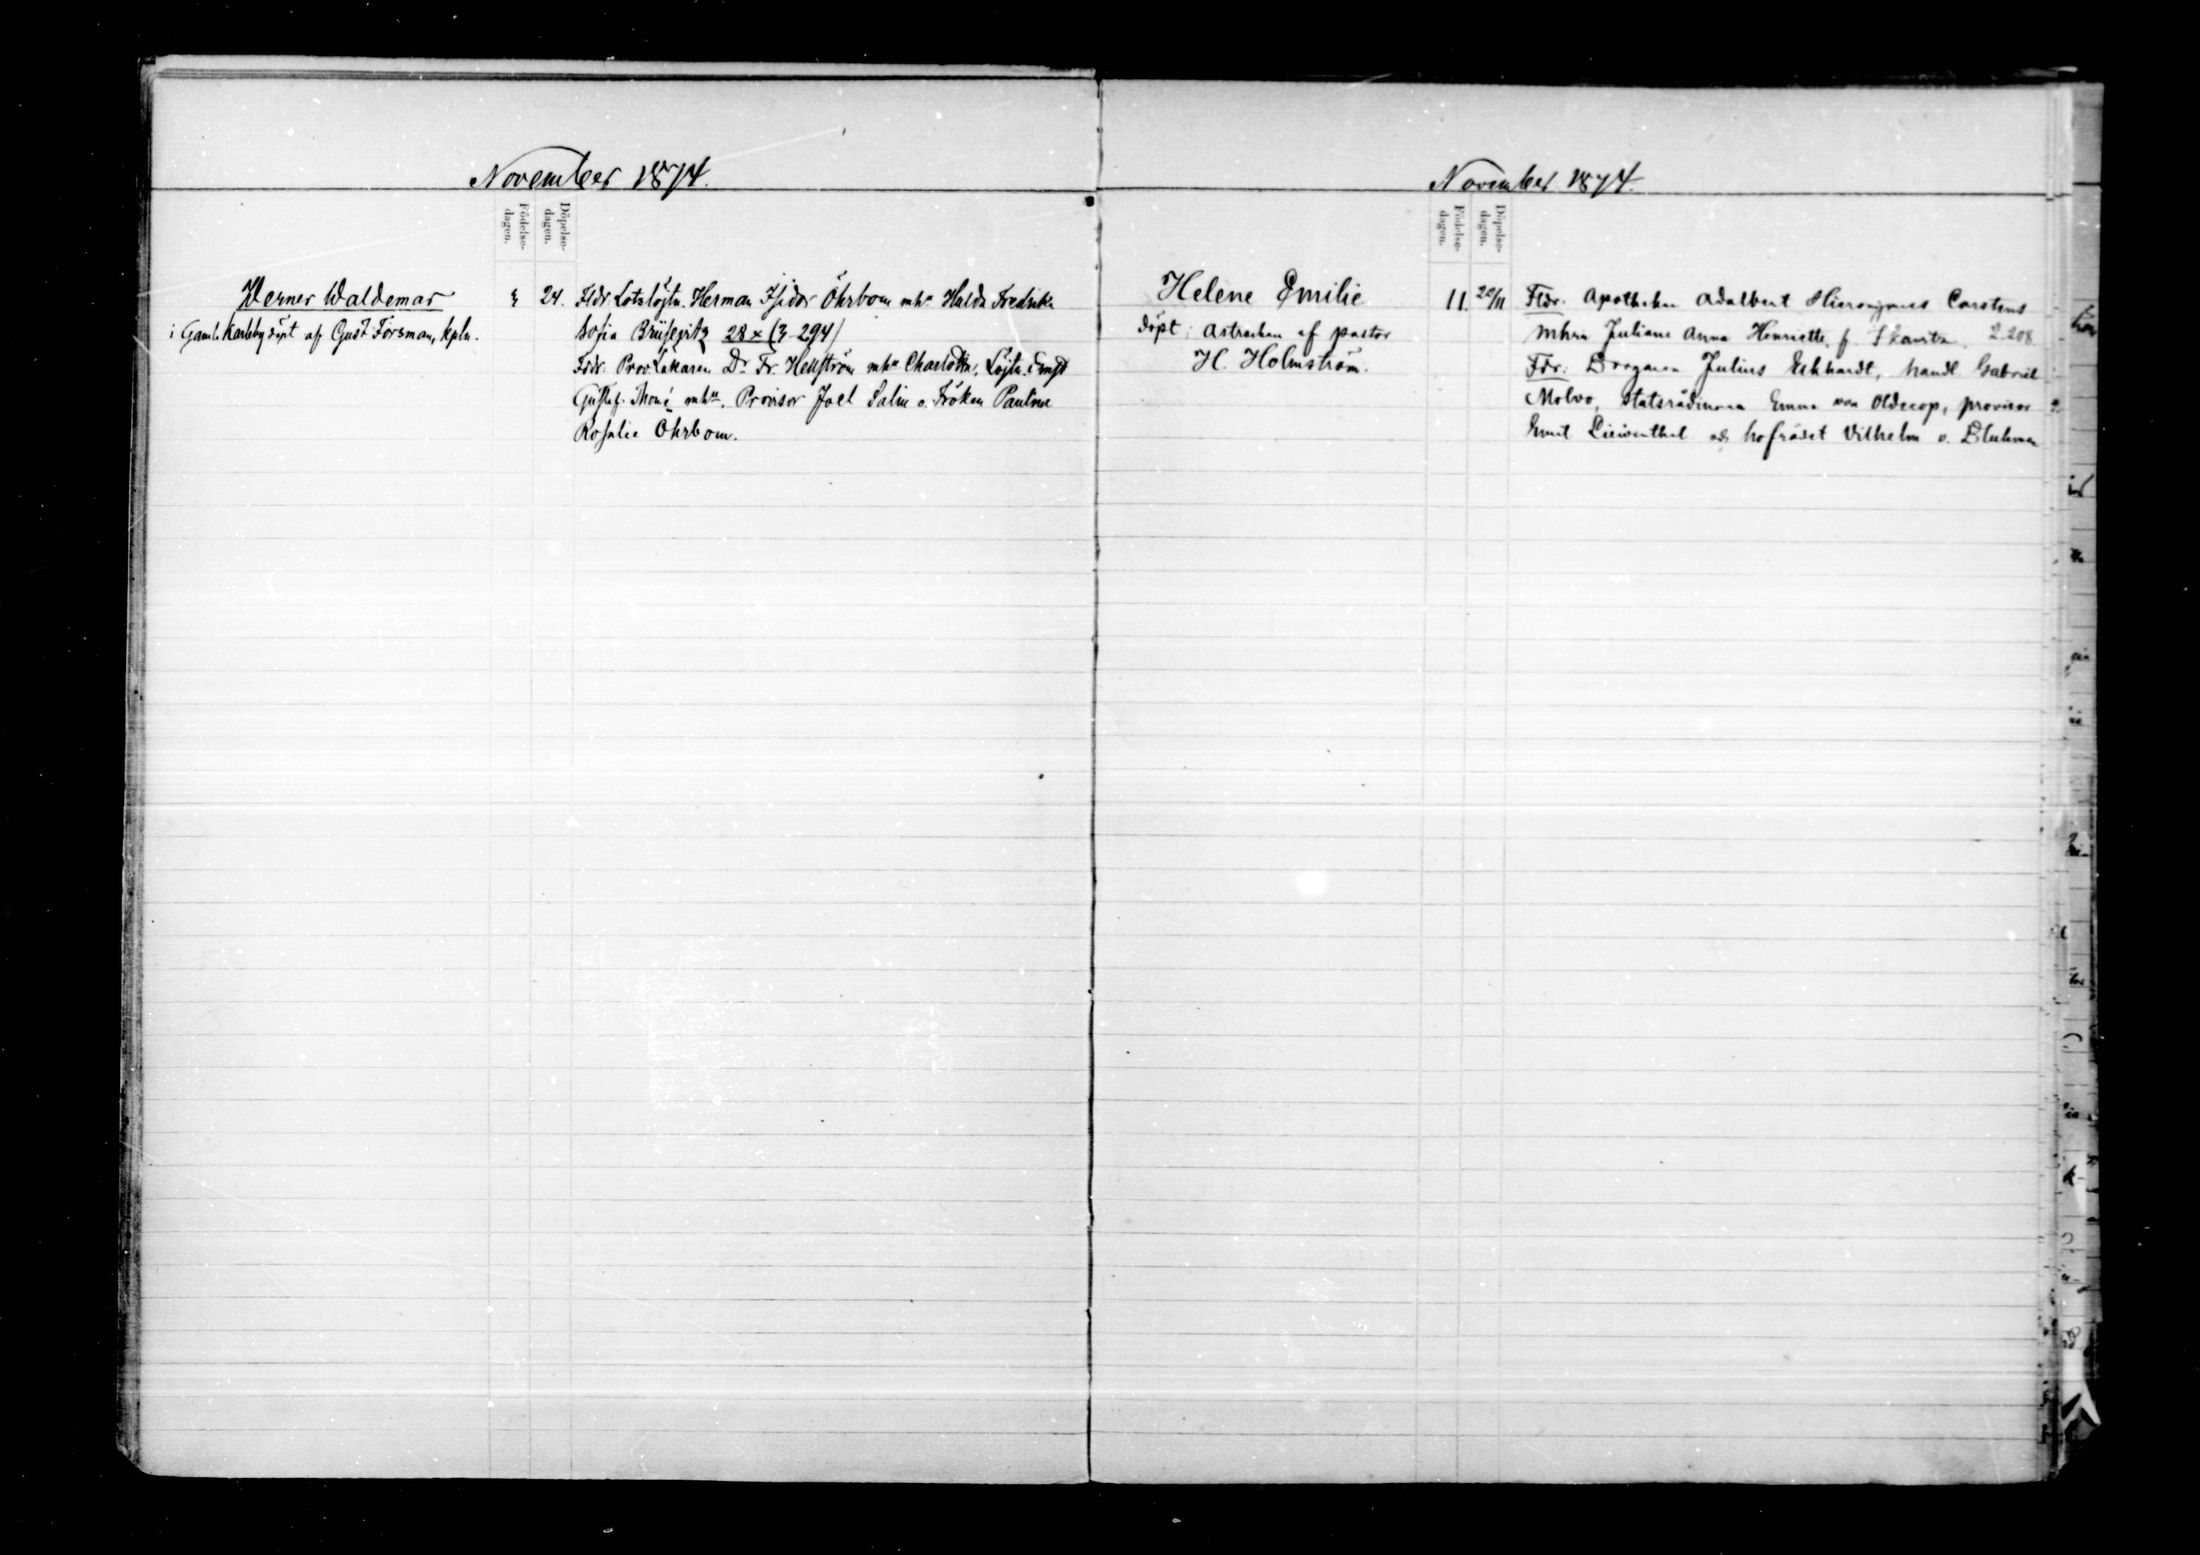 November 1874.
Födelse-
dagen.
Döpelse-
dagen.
Werner Waldemar
i Gaml. Karleby döpt af Gust. Forsman, kpln.
3
24.
Fldr. Lotslöjtn. Herman Isidor Öhrbom mhu Hulda Fredrika
Sofia 28 x (3-294)
Fdr. Prov. Läkaren Dr Fr. Hellström mhu Charlotta, Löjtn. Ernst
Gustaf Thomé mhu, Provisor Joel Salin o. Fröken Paulina
Rosalie Öhrbom.
November 1874.
Födelse-
dagen.
Döpelse-
dagen.
Helene Emilie
döpt i Astrachan af pastor
H. Holmström.
11.
20/11
Fldr. Apothekar Adalbert Hieronymus Carstens
mhru Juliane Anna Henriette f. 2.208
Fdr: Julius Eckhardt, handl. Gabriel
Molvo, statsrådinnan Emma von Oldecop, provisor
och hofrådet Vilhelm v. Bluhmen